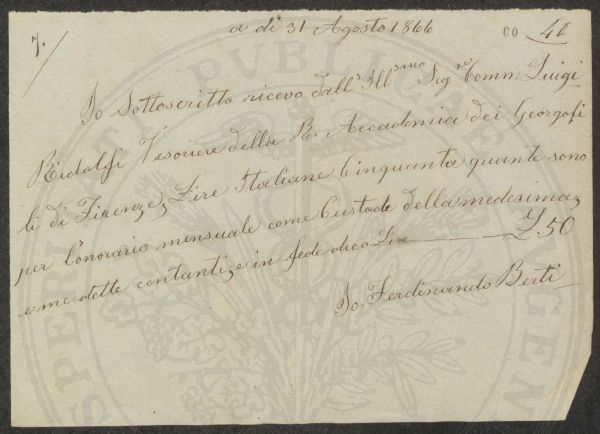 7.
a dì 31 Agosto 1866
CO 40
Io Sottoscritto ricevo dall' Ill.smo Sig.re Comm. Luigi
Ridolfi Tesoriere della R. Accademia dei Georgofi
li di Firenze, Lire Italiane Cinquanta quante sono
per l'onorario mensuale come Custode della medesima,
e me dette contanti, e in fede dico Lire —— £ 50
Io. Ferdinando Berti
PUBLICAE
PROSPERITATI
AUGENDAE